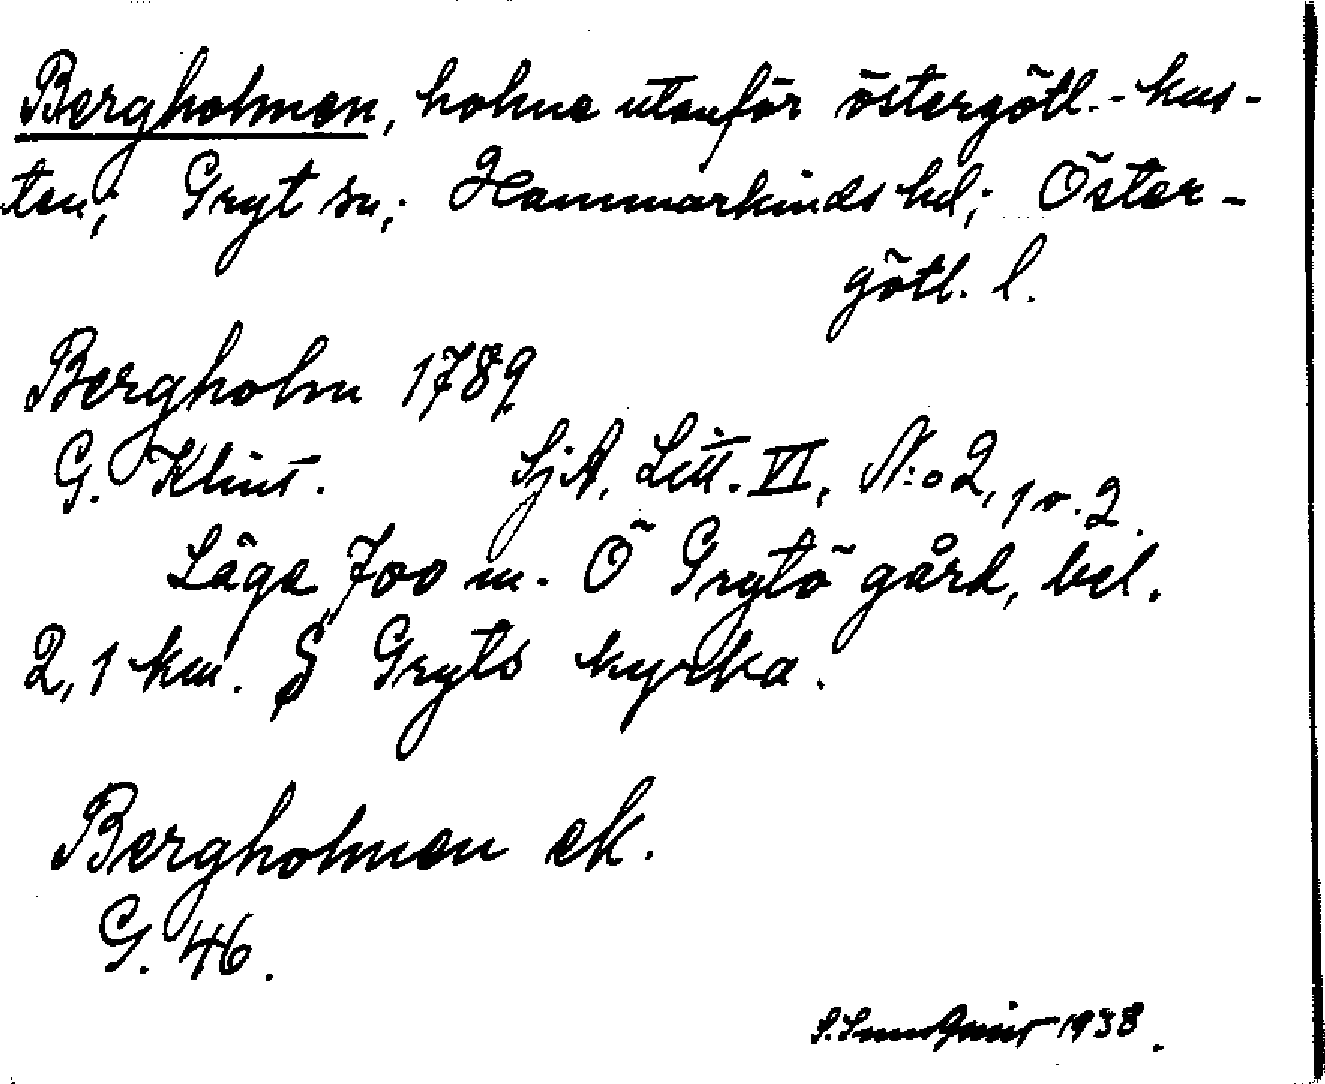 Bergholmen, holme utanför östergötl.-kus-
ten; Gryt sn; Hammarkinds hd; Öster-
götl. l.
Bergholm 1789
G. Klint. SjA, Litt. VI, N:o 2, 1 o. 2.
Läge 700 m. Ö Grytö gård, bel.
2,1 km. S Gryts kyrka.
Bergholmen ek.
G. 46.
1938.